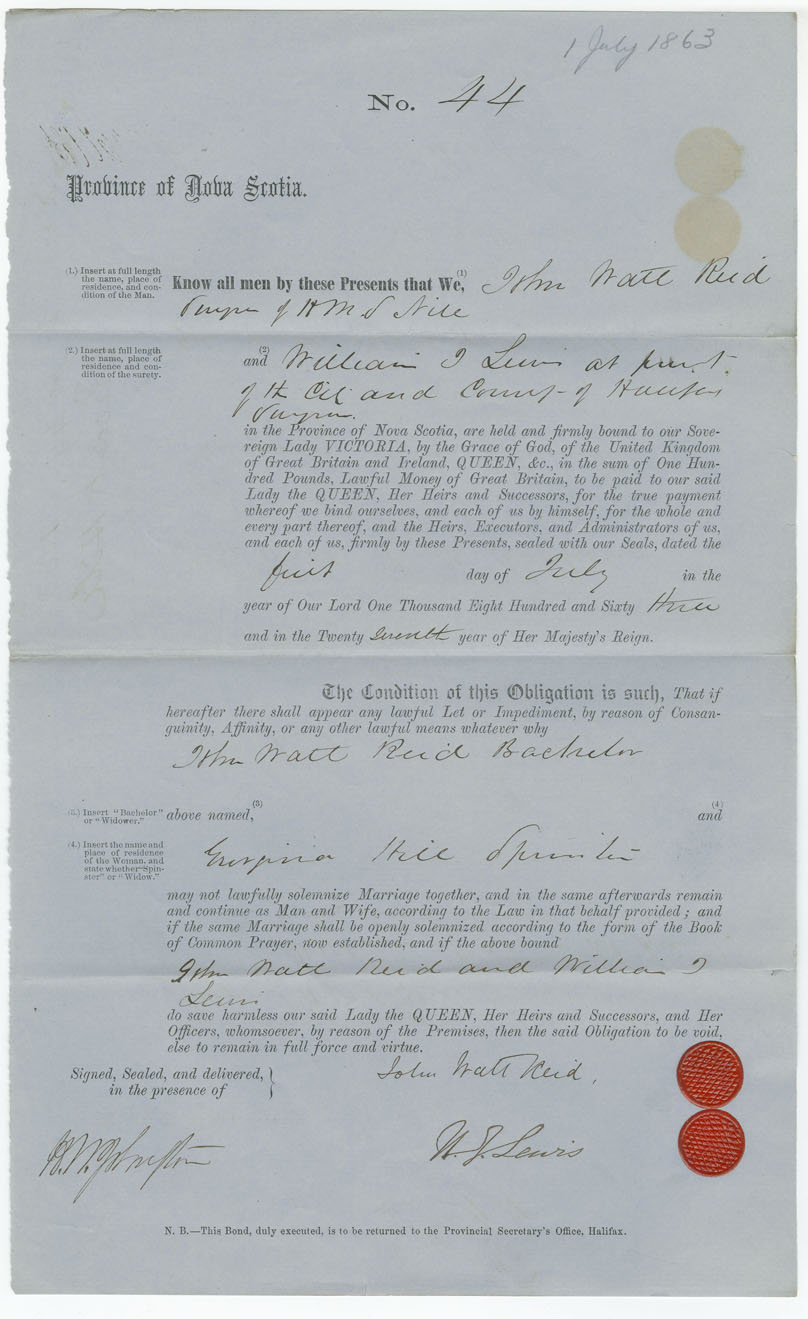 1 July 1863
No. 44
Province of Nova Scotia.
(1.) Insert at full length
the name, place of
residence, and con-
dition of the Man.
Know all men by these Presents that We,(1) John Watt Reid
Surgeon of HMS Nile
(2.) Insert at full length
the name, place of
residence and con-
dition of the surety.
(2)
and William J Lewis at
of the City and County of Halifax
Surgeon.
in the Province of Nova Scotia, are held and firmly bound to our Sove-
reign Lady VICTORIA, by the Grace of God, of the United Kingdom
of Great Britain and Ireland, QUEEN, &c., in the sum of One Hun-
dred Pounds, Lawful Money of Great Britain, to be paid to our said
Lady the QUEEN, Her Heirs and Successors, for the true payment
whereof we bind ourselves, and each of us by himself, for the whole and
every part thereof, and the Heirs, Executors, and Administrators of us,
and each of us, firmly by these Presents, sealed with our Seals, dated the
first day of July in the
year of Our Lord One Thousand Eight Hundred and Sixty three
and in the Twenty Seventh year of Her Majesty's Reign.
The Condition of this Obligation is such, That if
hereafter there shall appear any lawful Let or Impediment, by reason of Consan-
guinity, Affinity, or any other lawful means whatever why
John Watt Reid Bachelor
(3.) Insert "Bachelor"
or "Widower."
above named,(3) and(4)
(4.) Insert the name and
place of residence
of the Woman, and
state whether "Spin-
ster" or "Widow."
Georgina Hill Spinster
may not lawfully solemnize Marriage together, and in the same afterwards remain
and continue as Man and Wife, according to the Law in that behalf provided; and
if the same Marriage shall be openly solemnized according to the form of the Book
of Common Prayer, now established, and if the above bound
John Watt Reid and William J
Lewis
do save harmless our said Lady the QUEEN, Her Heirs and Successors, and Her
Officers, whomsoever, by reason of the Premises, then the said Obligation to be void,
else to remain in full force and virtue.
Signed, Sealed, and delivered,
in the presence of
John Watt Reid,
W. J. Lewis
N. B.—This Bond, duly executed, is to be returned to the Provincial Secretary's Office, Halifax.